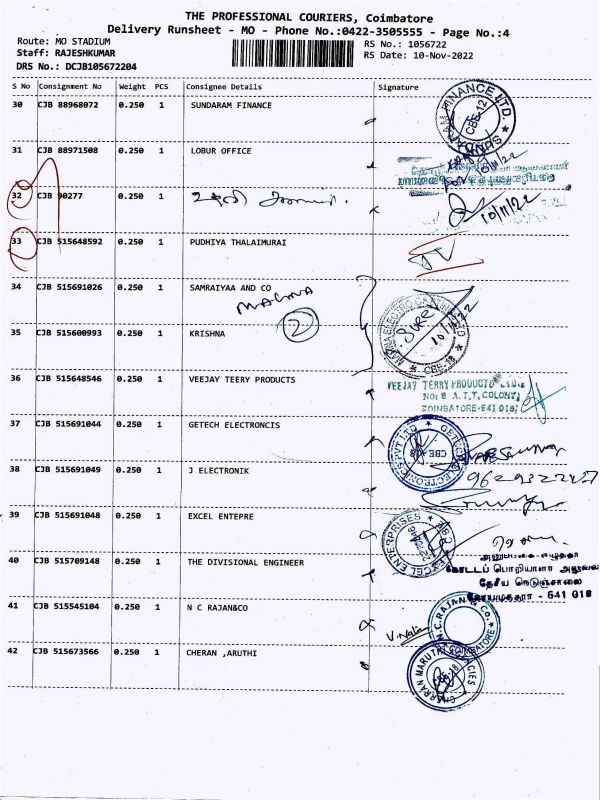 THE PROFESSIONAL COURIERS, Coimbatore
Delivery Runsheet - MO - Phone No.:0422-3505555 - Page No.:4
Route: MO STADIUM
RS No.: 1056722
Staff: RAJESHKUMAR
RS Date: 10-Nov-2022
DRS No.: DCJB105672204
S No Consignment No Weight PCS Consignee Details Signature
30 CJB 88968072 0.250 1 SUNDARAM FINANCE
CBE-12
31 CJB 88971508 0.250 1 LOBUR OFFICE
10/11/22
32 CJB 90277 0.250 1
10/11/22
33 CJB 515648592 0.250 1 PUDHIYA THALAIMURAI
34 CJB 515691026 0.250 1 SAMRAIYAA AND CO
MAGNA
2
35 CJB 515600993 0.250 1 KRISHNA
CBE-18
36 CJB 515648546 0.250 1 VEEJAY TEERY PRODUCTS
VEEJAY TERRY PRODUCTS
NO: 8 A.T.T. COLONY
COIMBATORE-641 018
37 CJB 515691044 0.250 1 GETECH ELECTRONCIS
GETECH ELECTRONICS PVT LTD
38 CJB 515691049 0.250 1 J ELECTRONIK
39 CJB 515691048 0.250 1 EXCEL ENTEPRE
EXCEL ENTERPRISES
40 CJB 515709148 0.250 1 THE DIVISIONAL ENGINEER
கோட்டப் பொறியாளர் அலுவல
தேசிய நெடுஞ்சாலை
கோயமுத்தூர் - 641 018
41 CJB 515545104 0.250 1 N C RAJAN&CO
V. Nalin
N.C.RAJAN & CO.
COIMBATORE
42 CJB 515673566 0.250 1 CHERAN ,ARUTHI
CHERRAN MARUTHI AGENCIES